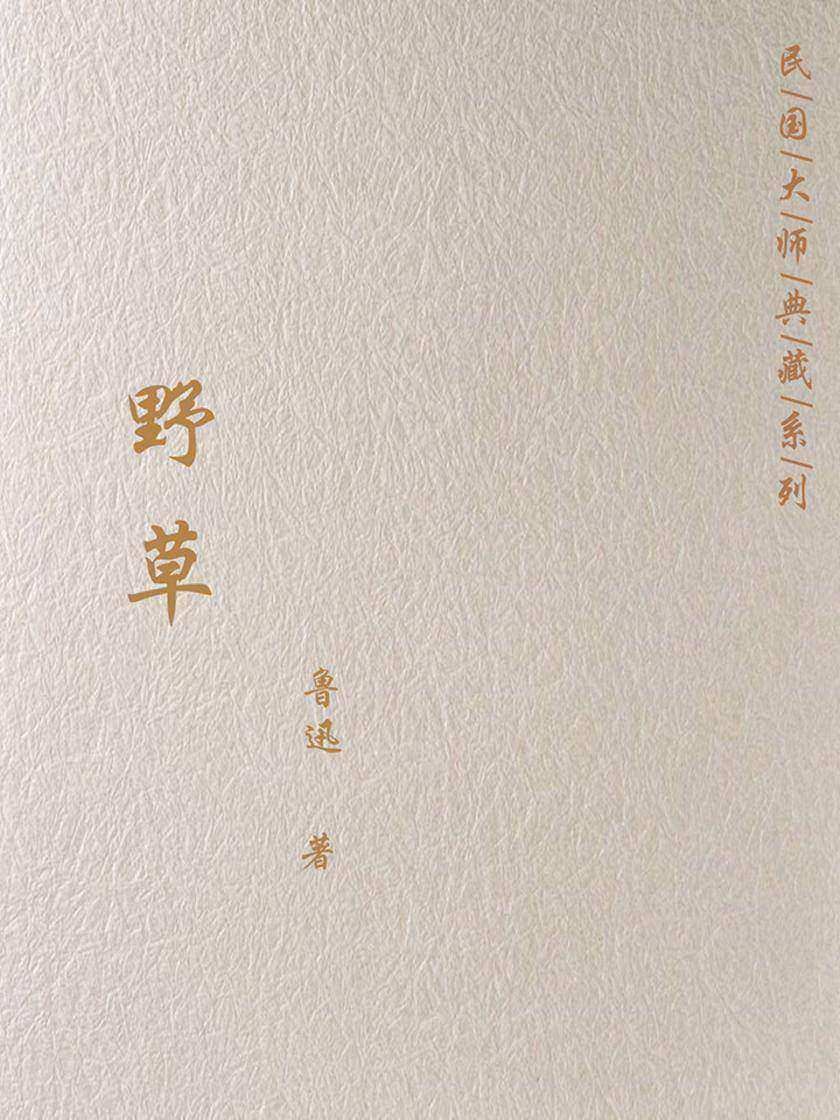 民/国/大/师/典/藏/系/列
野草
鲁迅 著